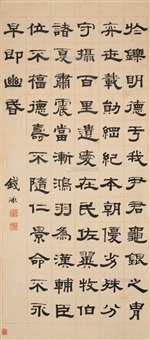 於鑠明德于我尹君龜銀之胄
奕世載勛綱紀本朝優劣殊分
守攝百里遺愛在民佐翼牧伯
諸夏肅震當漸鴻羽為漢輔臣
位不福德壽不隨仁景命不永
早即幽昏
錢泳